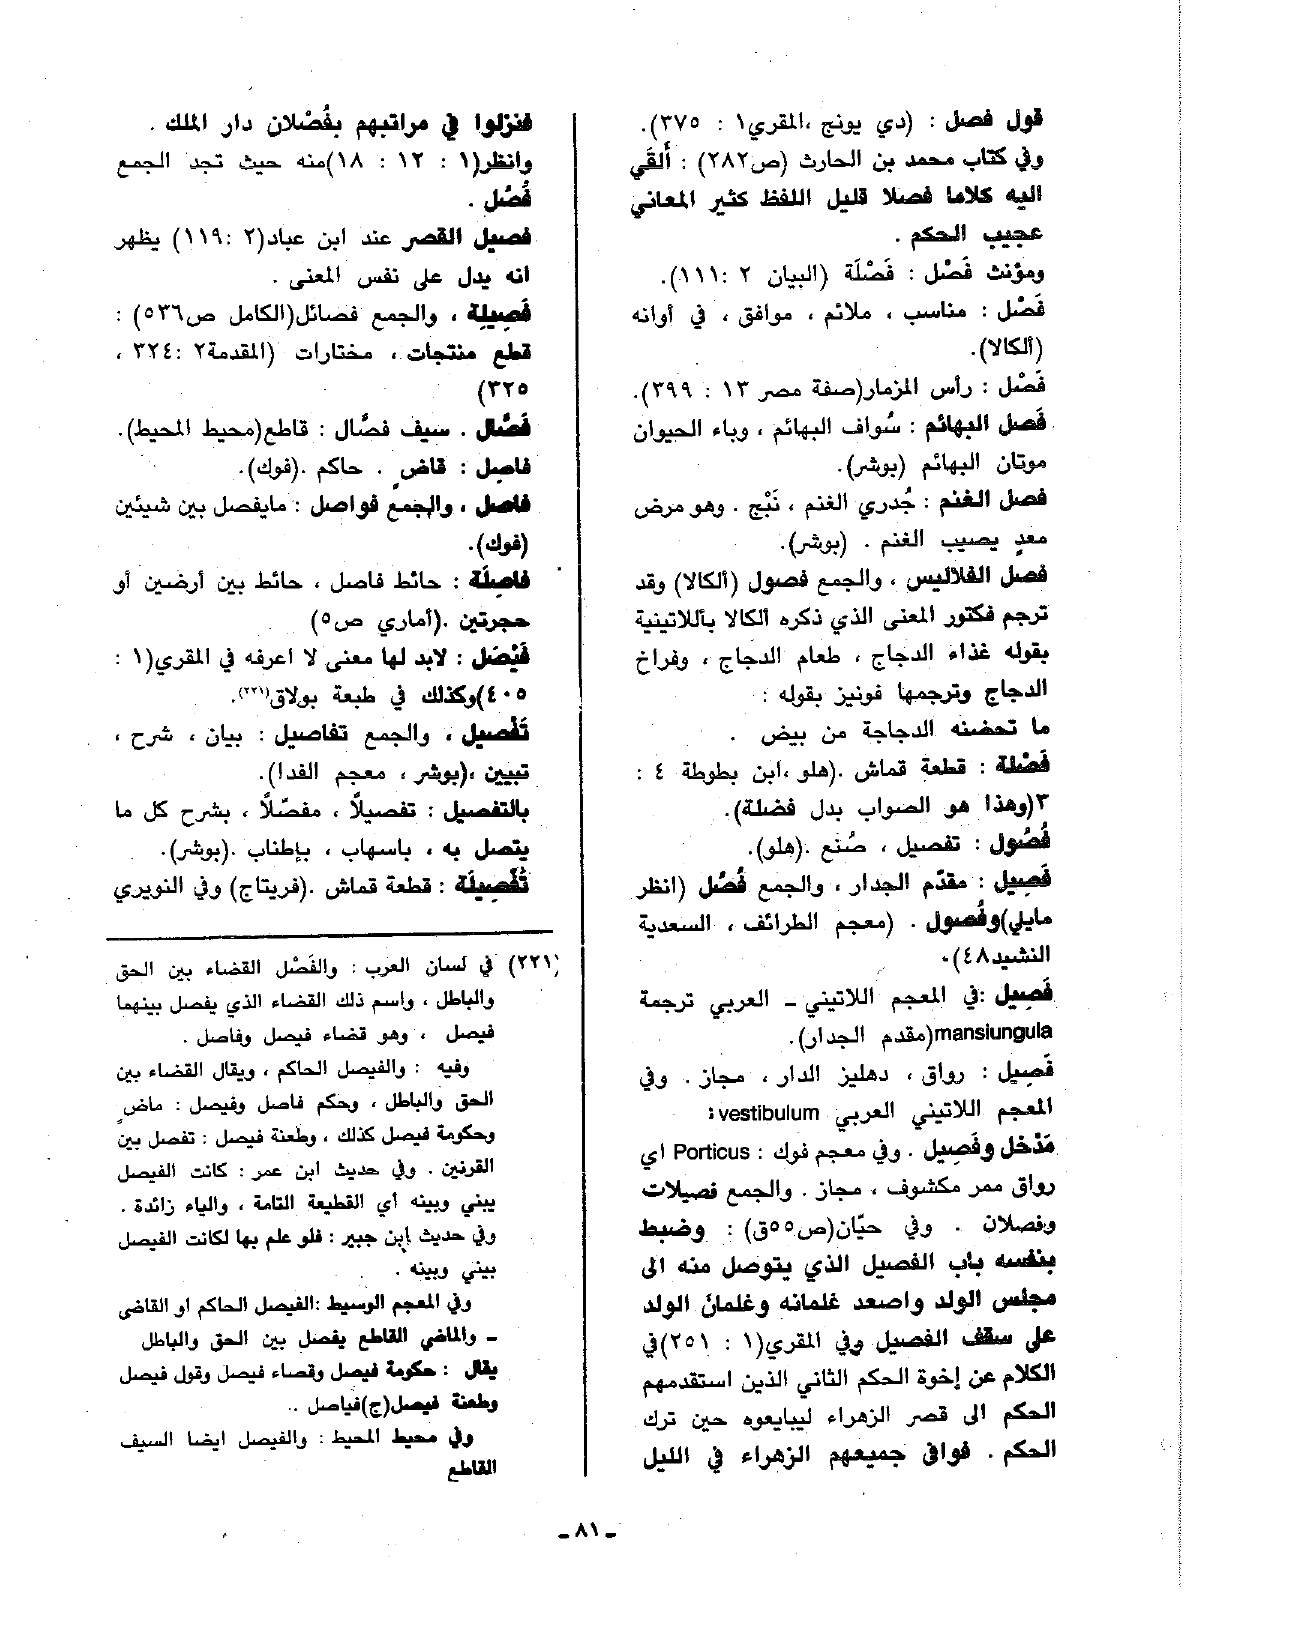 قول فصل : (دي يونج ،المقري١ : ٣٧٥).
وفي كتاب محمد بن الحارث (ص٢٨٢) : أَلقَي
اليه كلاما فصلا قليل اللفظ كثير المعاني
عجيب الحكم .
ومؤنث فَصْل : فَصْلَة (البيان ٢ :١١١).
فَصْل : مناسب ، ملائم ، موافق ، في أوانه
(ألكالا).
فَصْل : رأس المزمار(صفة مصر ١٣ : ٣٩٩).
فَصل البهائم : سُواف البهائم ، وباء الحيوان
موتان البهائم (بوشر).
فصل الغنم : جُدري الغنم ، نَبْج . وهو مرض
معدٍ يصيب الغنم . (بوشر).
فصل الفلاليس ، والجمع فصول (ألكالا) وقد
ترجم فكتور المعنى الذي ذكره ألكالا بأللاتينية
بقوله غذاء الدجاج ، طعام الدجاج ، وفراخ
الدجاج وترجمها فونيز بقوله :
ما تحضنه الدجاجة من بيض .
فَصْلة : قطعة قماش .(هلو ،ابن بطوطة ٤ :
٣(وهذا هو الصواب بدل فضلة).
فُصُول : تفصيل ، صُنع .(هلو).
فَصِيل : مقدّم الجدار ، والجمع فُصُل (انظر
مايلي)وفُصول . (معجم الطرائف ، السعدية
النشيد٤٨)٠
فَصِيل :في المعجم اللاتيني ـ العربي ترجمة
mansiungula(مقدم الجدار).
فَصِيل : رواق ، دهليز الدار ، مجاز . وفي
المعجم اللاتيني العربي vestibulum :
مَدْخل وفَصِيل . وفي معجم فوك : Porticus اي
رواق ممر مكشوف ، مجاز . والجمع فصيلات
وفصلان . وفي حيّان(ص٥٥ق) : وضبط
بنفسه باب الفصيل الذي يتوصل منه الى
مجلس الولد واصعد غلمانه وغلمان الولد
على سقف الفصيل وفي المقري(١ : ٢٥١)في
الكلام عن إخوة الحكم الثاني الذين استقدمهم
الحكم الى قصر الزهراء ليبايعوه حين ترك
الحكم . فوافى جميعهم الزهراء في الليل
فنزلوا في مراتبهم بفُصْلان دار الملك .
وانظر(١ : ١٢ : ١٨)منه حيث تجد الجمع
فُصُل .
فصيل القصر عند ابن عباد(٢ :١١٩) يظهر
انه يدل على نفس المعنى .
فَصِيلة ، والجمع فصائل(الكامل ص٥٣٦) :
قطع منتجات ، مختارات (المقدمة٢ :٣٢٤ ،
٣٢٥)
فَصَّال . سيف فصَّال : قاطع(محيط المحيط).
فاصِل : قاضٍ . حاكم .(فوك).
فاصل ، والجمع فواصل : مايفصل بين شيئين
(فوك).
فاصِلَة : حائط فاصل ، حائط بين أرضين أو
حجرتين .(أماري ص٥)
فَيْصَل : لابد لها معنى لا اعرفه في المقري(١ :
٤٠٥)وكذلك في طبعة بولاق(٢٢١).
تَفْصيل ، والجمع تفاصيل : بيان ، شرح ،
تبيين ،(بوشر ، معجم الفدا).
بالتفصيل : تفصيلاً ، مفصّلاً ، بشرح كل ما
يتصل به ، باسهاب ، بإطناب .(بوشر).
تُفْصِيلَة : قطعة قماش .(فريتاج) وفي النويري
(٢٢١) في لسان العرب : والفَصْل القضاء بين الحق
والباطل ، واسم ذلك القضاء الذي يفصل بينهما
فيصل ، وهو قضاء فيصل وفاصل .
وفيه : والفيصل الحاكم ، ويقال القضاء بين
الحق والباطل ، وحكم فاصل وفيصل : ماضٍ
وحكومة فيصل كذلك ، وطعنة فيصل : تفصل بين
القرنين . وفي حديث ابن عمر : كانت الفيصل
بيني وبينه أي القطيعة التامة ، والياء زائدة .
وفي حديث إبن جبير : فلو علم بها لكانت الفيصل
بيني وبينه .
وفي المعجم الوسيط :الفيصل الحاكم او القاضي
ـ والماضي القاطع يفصل بين الحق والباطل
يقال : حكومة فيصل وقضاء فيصل وقول فيصل
وطعنة فيصل(ج)فياصل ..
وفي محيط المحيط : والفيصل ايضا السيف
القاطع
ـ ٨١ ـ